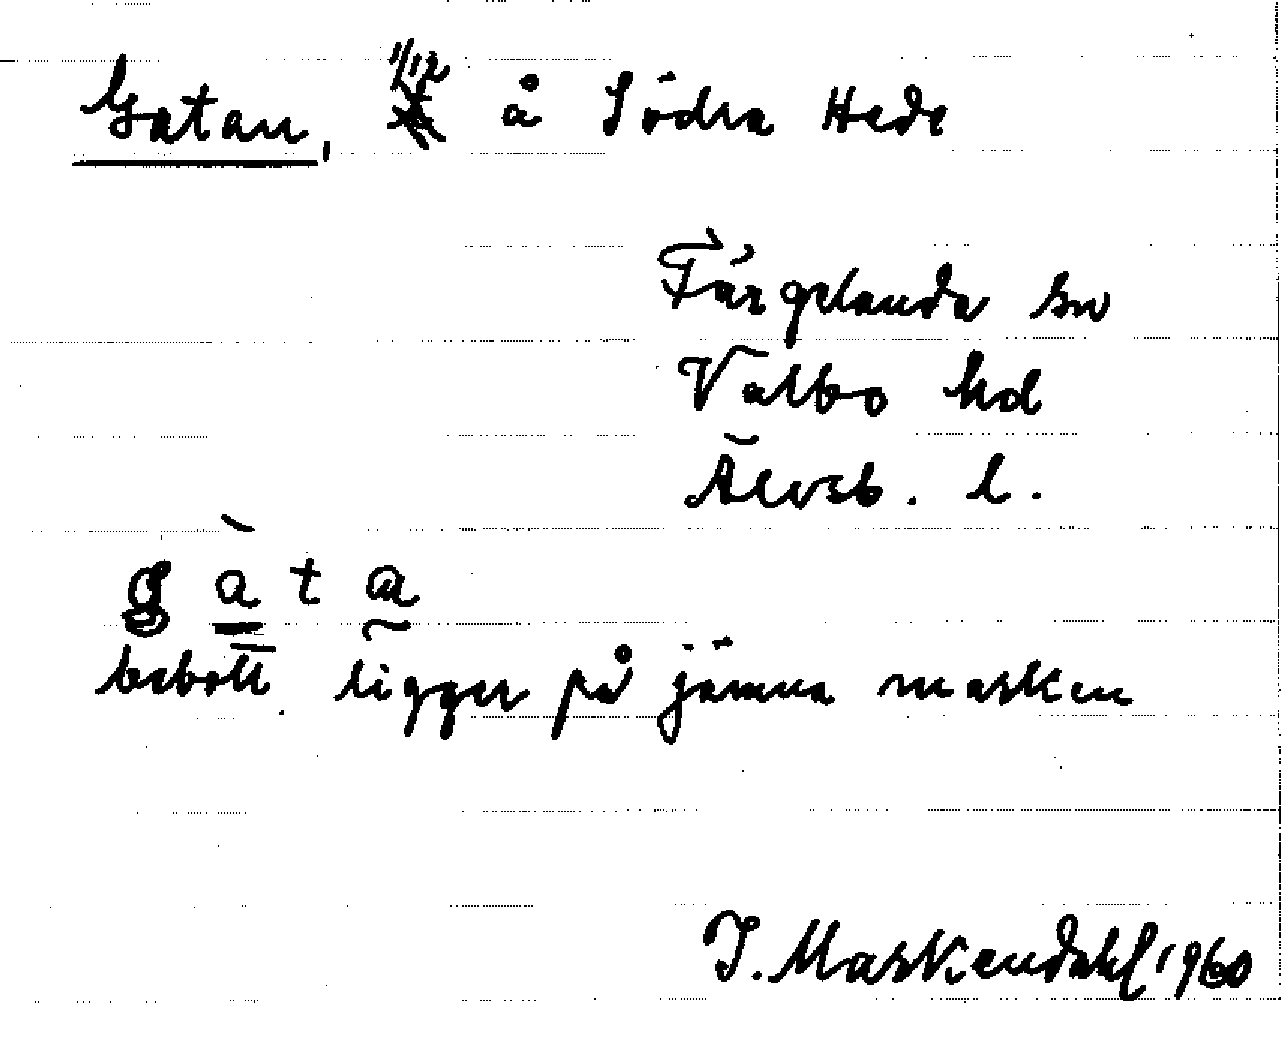 Gatan, 1/12 å Södra Hede
Färgelanda sn
Valbo hd
Älvsb. l.
g à t a
bebott. ligger på jämna marken
I. Markendahl 1960